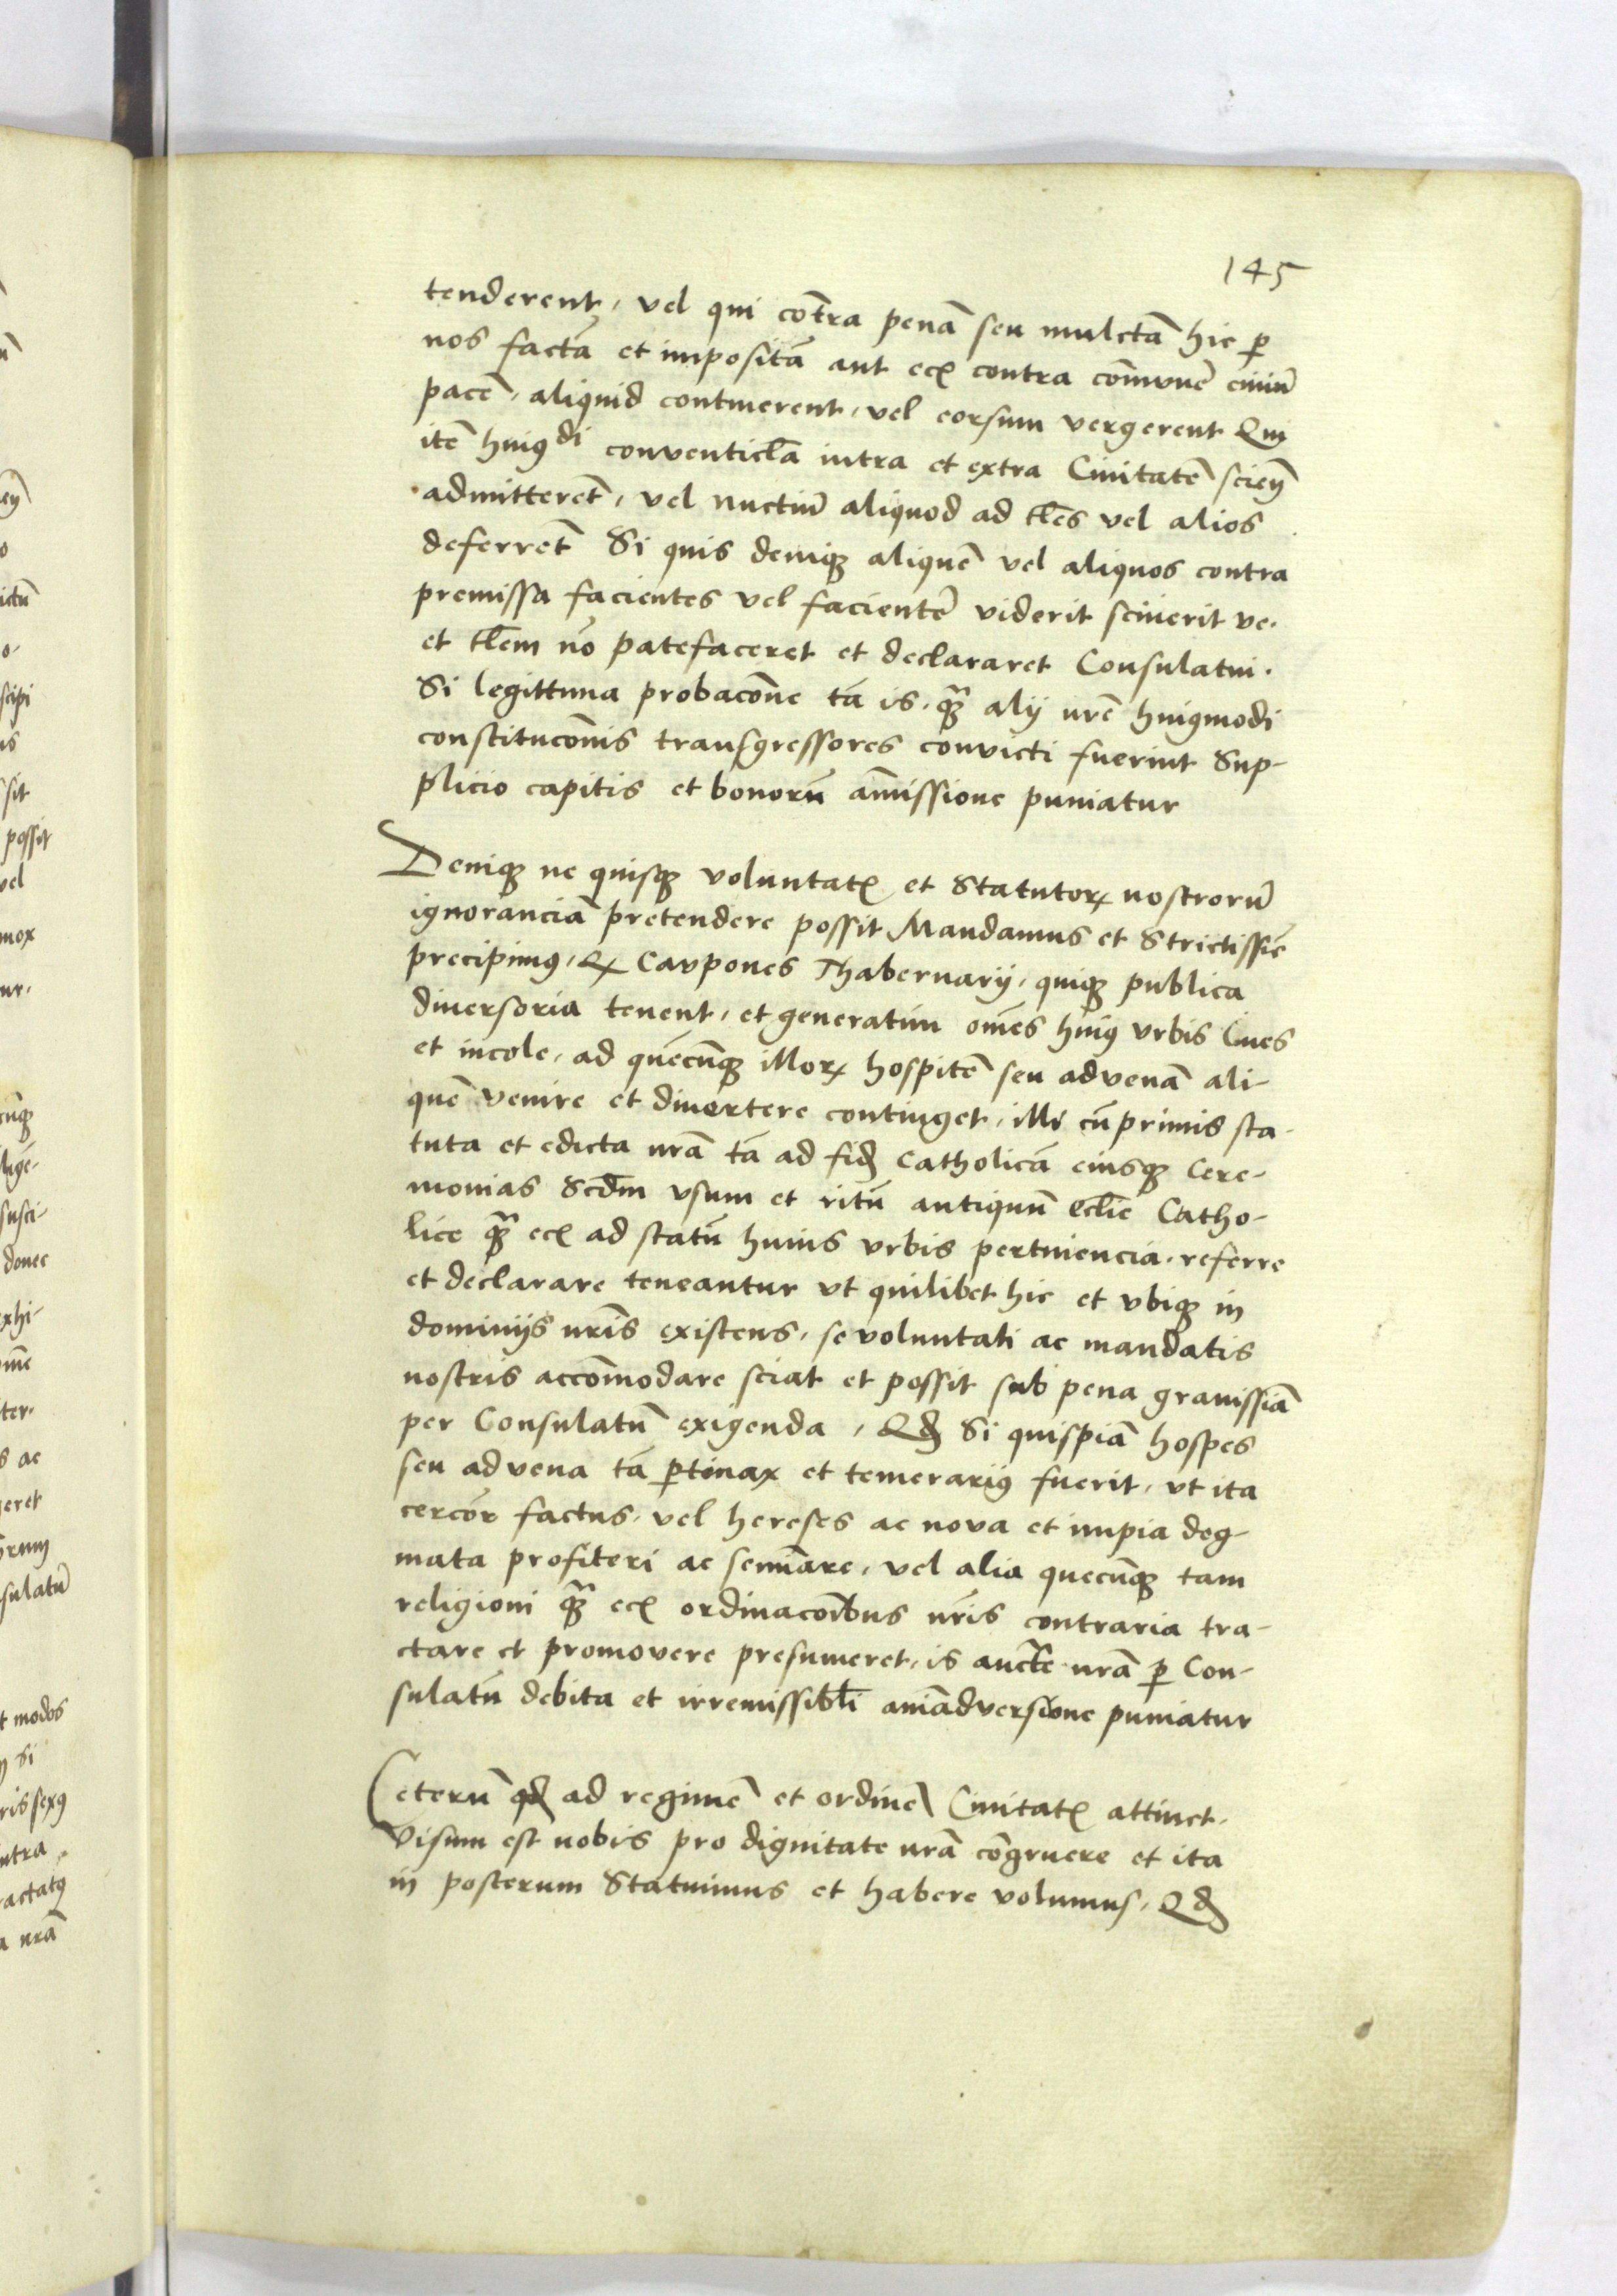 145
tenderent, vel qui cōtra penā seu mulctā hic ꝑ
nos factā et impositā aut ecꝫ contra com̄unē ciuiū
pacē, aliquid continerent, vel eorsum vergerent Qui
itē huiꝰdi conventicl̄a intra et extra Ciuitatē scieñ
admitterēt, vel nūctiū aliquod ad tl̄es vel alios
deferrēt Si quis deniqꝫ aliquē vel aliquos contra
premissa facientes vel facientē viderit sciuerit ve.
et tl̄em nō patefaceret et declararet Consulatui.
Si legittima probacōne tā is, qꝫ̄ alij nr̄e huiꝰmodi
constitucōnis transgressores convicti fuerint Sup-
plicio capitis et bonorū am̄issione puniatur
Deniqꝫ ne quisqꝫ voluntatꝭ et Statutoꝝ nostrorū
ignoranciā pretendere possit Mandamus et Strictissīe
precipimꝰ, Qꝫ Caupones Thabernarij, quiqꝫ publica
diuersoria tenent, et generatim om̄es huiꝰ vrbis Ciues
et incole, ad quēcūqꝫ illoꝝ hospitē seu advenā ali-
quē venire et diuertere continget, illi cūprimis sta-
tuta et edicta nr̄a tā ad fidꝫ Catholicā eiusqꝫ Cere-
monias Scd̄m vsum et ritū antiquū Eccl̄ie Catho-
lice qꝫ̄ ecꝫ ad statū huius vrbis pertinencia, referre
et declarare teneantur vt quilibet hic et vbiqꝫ in
dominijs nr̄is existens, se voluntati ac mandatis
nostris accōmodare sciat et possit sub pena grauissīa
per Consulatū exigenda, Qd Si quispiā hospes
seu advena tā ꝑtinax et temerariꝰ fuerit, vt ita
cercōr factus, vel hereses ac nova et impia dog-
mata profiteri ac semīare, vel alia quecūqꝫ tam
religioni qꝫ̄ ecꝫ ordinacōibus nr̄is contraria tra-
ctare et promovere presumeret, is auctē nr̄a ꝑ Con-
sulatū debita et irremissibl̄i anīadversione puniatur
Ceterū qd ad regimē et ordinē Ciuitatꝭ attinet,
Visum est nobis pro dignitate nr̄a cōgruere et ita
in posterum Statuimus et habere volumus, Qd